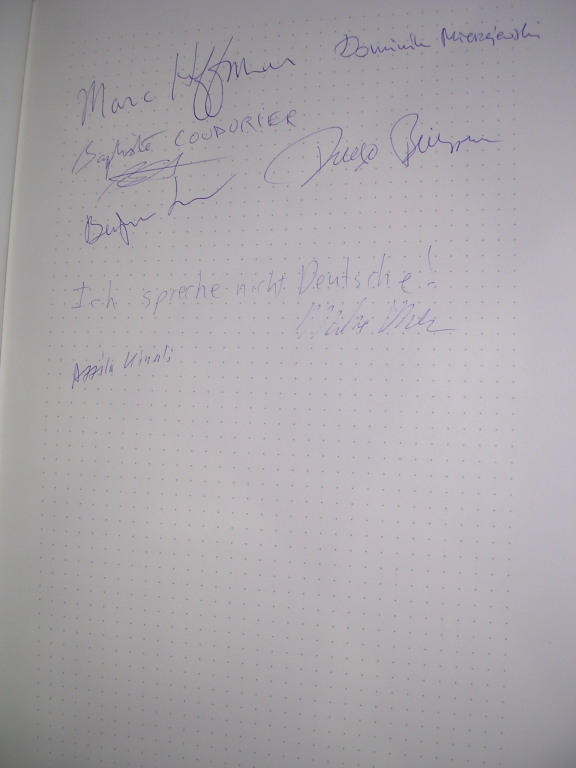 Marc Hoffman Dominik Mierzejewski
Baptiste COUDURIER
Diego
Ich spreche nicht Deutsche!
Mike
Attila Kinali